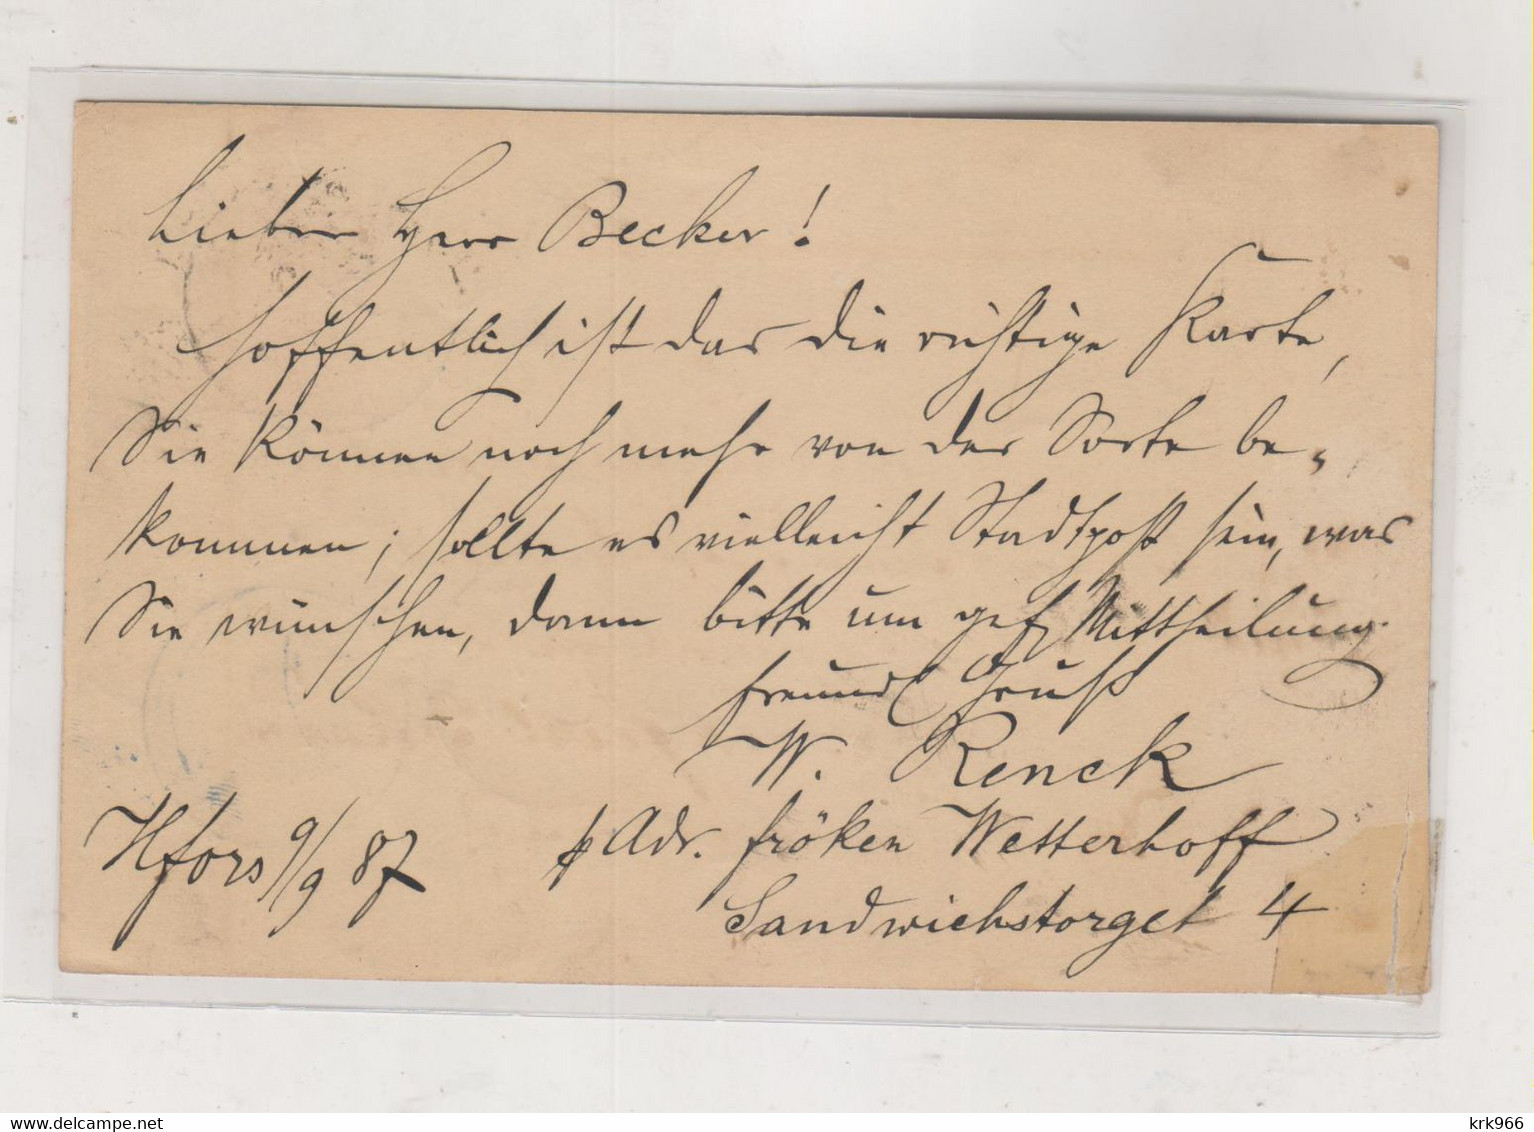 Lieber Herr Becker!
Hoffentlich ist das die richtige Karte,
Sie können noch mehr von der Sorte be-
kommen; sollte es vielleicht Stadtpost sein, was
Sie wünschen, dann bitte um gef Mittheilung.
Freundl Gruß
W. Renck
Hfors 9/9 87
p Adr. fröken Wetterhoff
Sandwichstorget 4
krk966